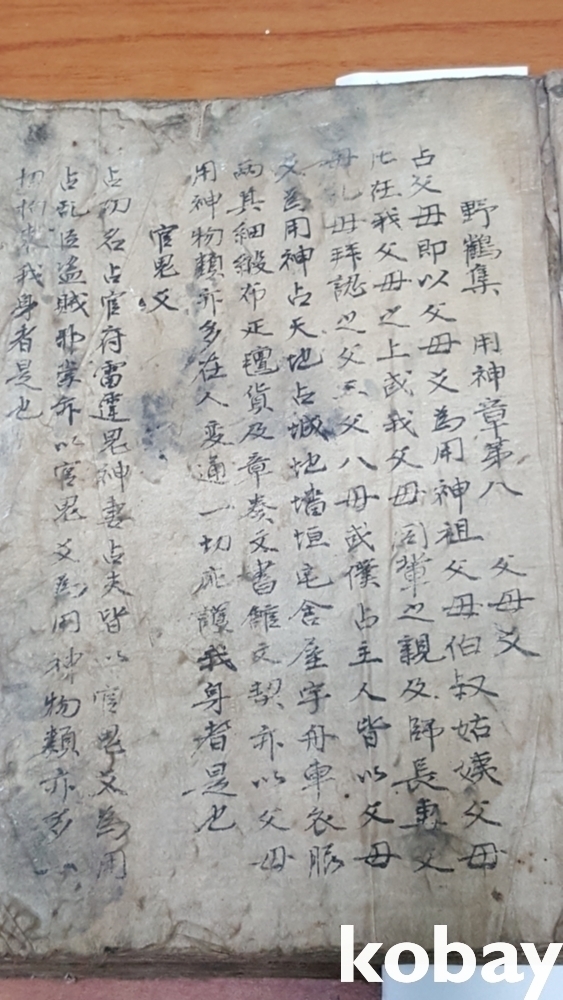 野鶴集 用神章第八 父母爻
占父母即以父母爻為用神祖父母伯叔姑姨父母
在我父母之上或我父母同輩之親及師長 父
母 母拜認之父 父八母或僕占主人皆以父母
爻為用神占天地占城池墻垣宅舍屋宇舟車衣服
其細緞布疋 貨及章奏文書館文契亦以父母
用神物類亦多在人變通一切庇護我身者是也
官鬼爻
占功名占官府雷 鬼神妻占夫皆以官鬼爻為用
占乱臣盗賊邪祟亦以官鬼爻為用神物類亦多一
切拘束我身者是也
kobay